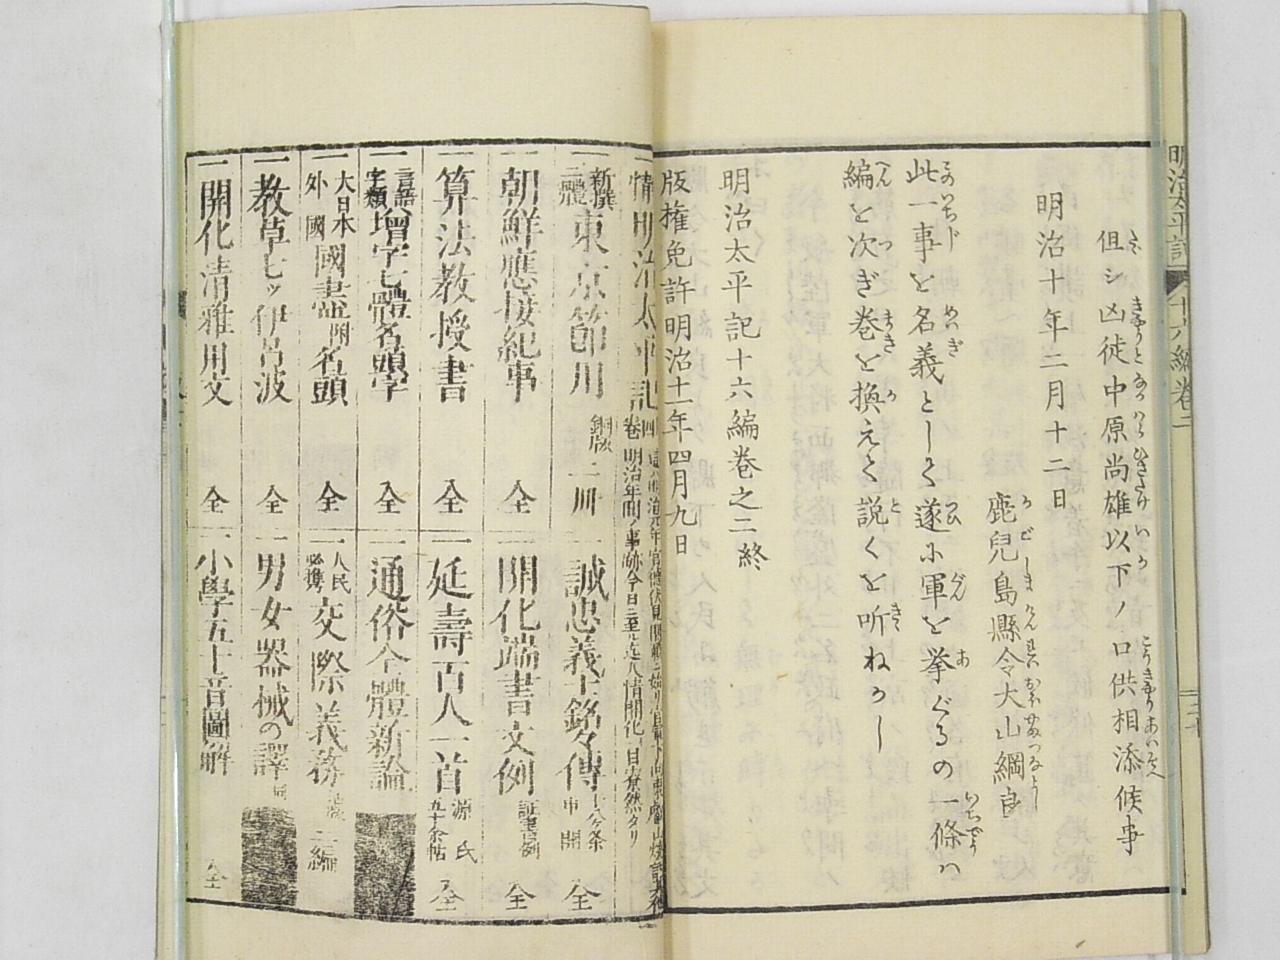 明治太平記 十六編巻二
但シ凶徒中原尚雄以下ノ口供相添候事
明治十年二月十二日
鹿兒島縣令大山綱良
此一事を名義として遂に軍を挙ぐるの一條ハ
編を次ぎ巻を換えて説くを听ねかし
明治太平記十六編巻之二終
版権免許明治十一年四月九日
一新撰三體東京節用 銅版 二冊
一朝鮮應接紀事 全
一算法教授書 全
一言語字類増字七體名頭字 全
一大日本外國國盡附名頭 全
一教草七ツ伊呂波 全
一開化清雅用文 全
一誠忠義士銘々傳 全
一開化端書文例 全
一延壽百人一首 源氏五十余帖 全
一通俗全體新論
一人民必携交際義務 二編
一男女器械の譯
一小學五十音圖解 全